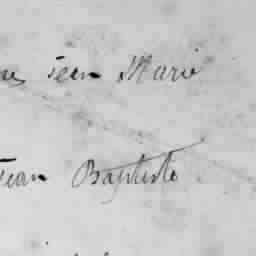 Jean Marie
Jean Baptiste